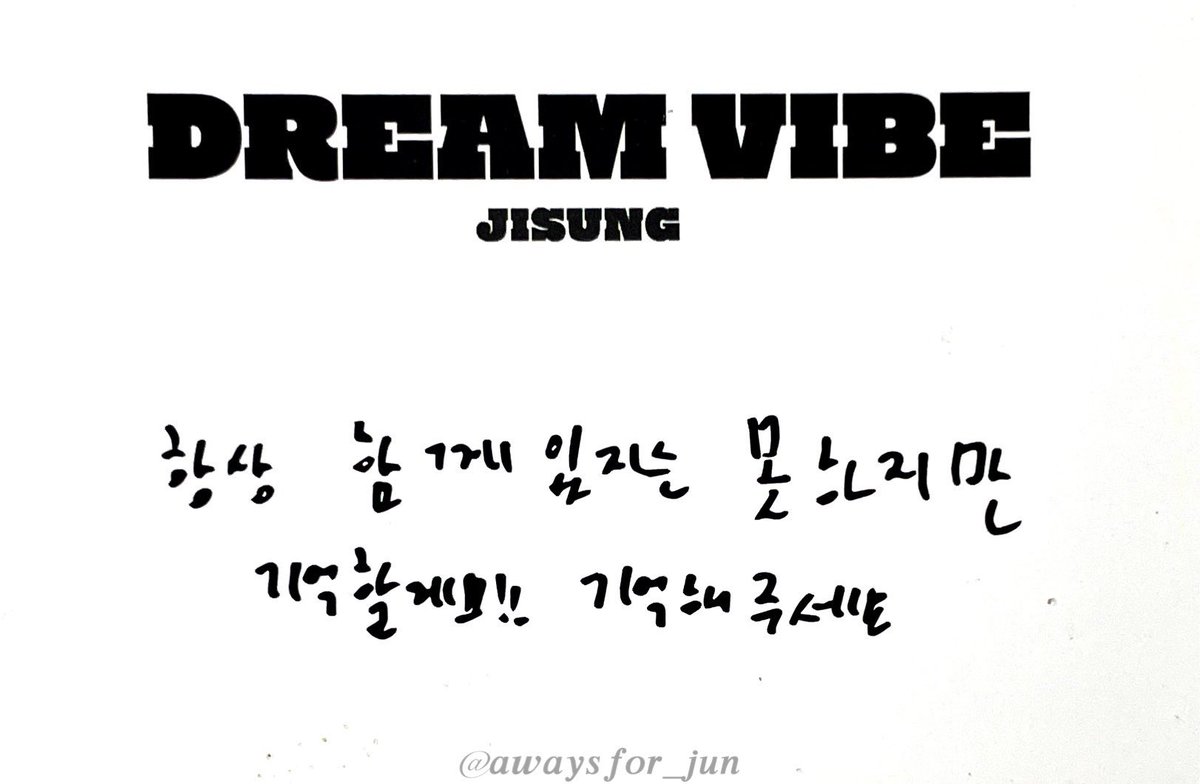 DREAM VIBE
JISUNG
항상 함께 있지는 못하지만
기억할게요!! 기억해 주세요
@aways for_jun